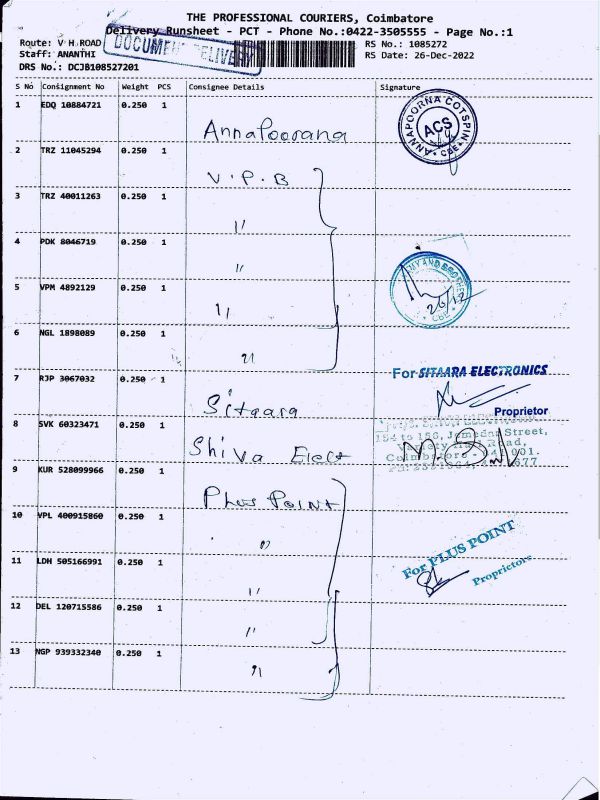 THE PROFESSIONAL COURIERS, Coimbatore
Delivery Runsheet - PCT - Phone No.:0422-3505555 - Page No.:1
Route: V H ROAD
DOCUMENT DELIVERY
RS No.: 1085272
Staff: ANANTHI
RS Date: 26-Dec-2022
DRS No.: DCJB108527201
S No Consignment No Weight PCS Consignee Details Signature
1 EDQ 10884721 0.250 1
Annapoorana
ANNAPOORNA COTSPIN ACS CBE
2 TRZ 11045294 0.250 1
V.P.B
3 TRZ 40011263 0.250 1
"
4 PDK 8046719 0.250 1
"
5 VPM 4892129 0.250 1
"
26/12
CBE
6 NGL 1898089 0.250 1
"
For SITAARA ELECTRONICS
7 RJP 3067032 0.250 1
Sitaara
Proprietor
8 SVK 60323471 0.250 1
Shiva Elect
Street,
Road,
Coimbatore - 641 001.
9 KUR 528099966 0.250 1
Plus Point
10 VPL 400915860 0.250 1
"
For PLUS POINT
11 LDH 505166991 0.250 1
"
Proprietors
12 DEL 120715586 0.250 1
"
13 NGP 939332340 0.250 1
"